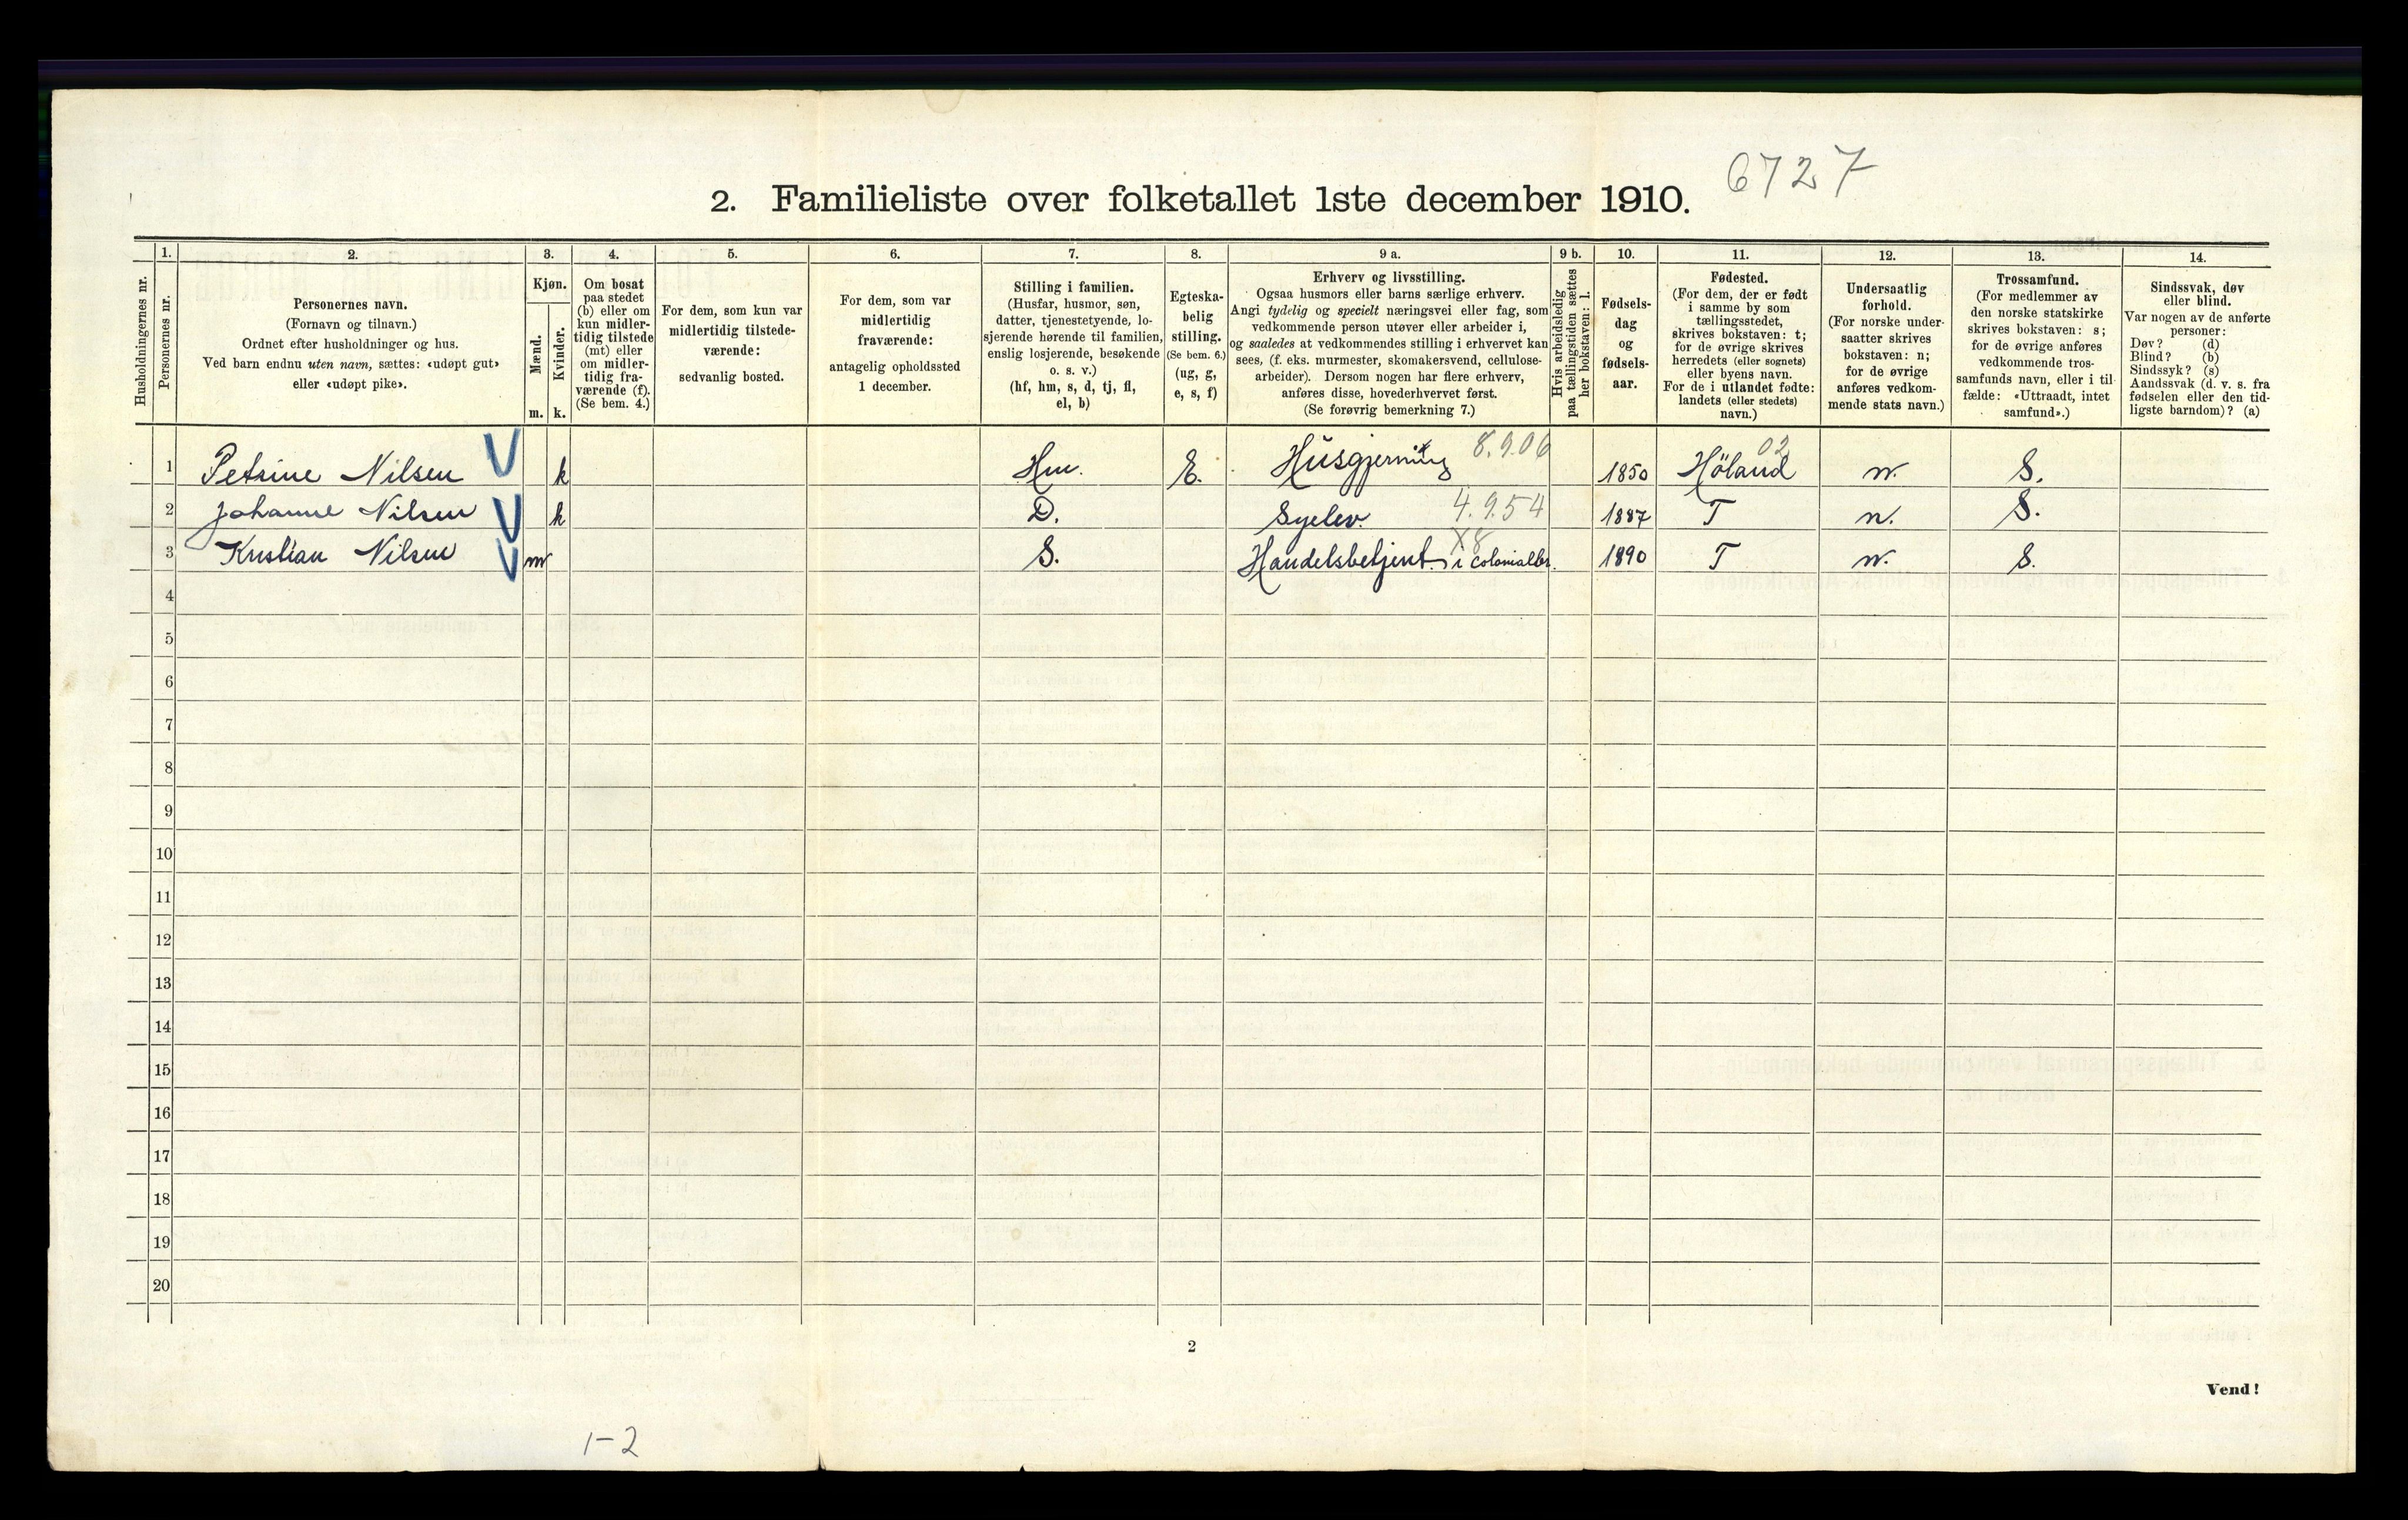 6727
2. Familieliste over folketallet 1ste december 1910.
Husholdningernes nr.
1.
Personernes nr.
2.
Personernes navn.
(Fornavn og tilnavn.)
Ordnet efter husholdninger og hus.
Ved barn endnu uten navn, sættes: «udøpt gut»
eller «udøpt pike».
3.
Kjøn.
Mænd.
m.
Kvinder.
k.
4.
Om bosat
paa stedet
(b) eller om
kun midler-
tidig tilstede
(mt) eller
om midler-
tidig fra-
værende (f).
(Se bem. 4.)
5.
For dem, som kun var
midlertidig tilstede-
værende:
sedvanlig bosted.
6.
For dem, som var
midlertidig
fraværende:
antagelig opholdssted
1 december.
7.
Stilling i familien.
(Husfar, husmor, søn,
datter, tjenestetyende, lo-
sjerende hørende til familien,
enslig losjerende, besøkende
o. s. v.)
(hf, hm, s, d, tj, fl,
el, b)
8.
Egteska-
belig
stilling.
(Se bem. 6.)
(ug, g,
e, s, f)
9 a.
Erhverv og livsstilling.
Ogsaa husmors eller barns særlige erhverv.
Angi tydelig og specielt næringsvei eller fag, som
vedkommende person utøver eller arbeider i,
og saaledes at vedkommendes stilling i erhvervet kan
sees, (f. eks. murmester, skomakersvend, cellulose-
arbeider). Dersom nogen har flere erhverv,
anføres disse, hovederhvervet først.
(Se forøvrig bemerkning 7.)
9 b.
Hvis arbeidsledig
paa tællingstiden sættes
her bokstaven: l.
10.
Fødsels-
dag
og
fødsels-
aar.
11.
Fødested.
(For dem, der er født
i samme by som
tællingsstedet,
skrives bokstaven: t;
for de øvrige skrives
herredets (eller sognets)
eller byens navn.
For de i utlandet fødte:
landets (eller stedets)
navn.)
12.
Undersaatlig
forhold.
(For norske under-
saatter skrives
bokstaven: n;
for de øvrige
anføres vedkom-
mende stats navn.)
13.
Trossamfund.
(For medlemmer av
den norske statskirke
skrives bokstaven: s;
for de øvrige anføres
vedkommende tros-
samfunds navn, eller i til-
fælde: «Uttraadt, intet
samfund».)
14.
Sindssvak, døv
eller blind.
Var nogen av de anførte
personer:
Døv? (d)
Blind? (b)
Sindssyk? (s)
Aandssvak (d. v. s. fra
fødselen eller den tid-
ligste barndom)? (a)
1 Petrine Nilsen V k Hm. E. Husgjerning 8.9.06 1850 Höland 02 n. S.
2 Johanne Nilsen V k D. Syelev. 4.9.54 1887 T n. S.
3 Kristian Nilsen V m S. Handelsbetjent i colonialbr. X8 1890 T n. S.
4
5
6
7
8
9
10
11
12
13
14
15
16
17
18
19
20
2
Vend!
1-2